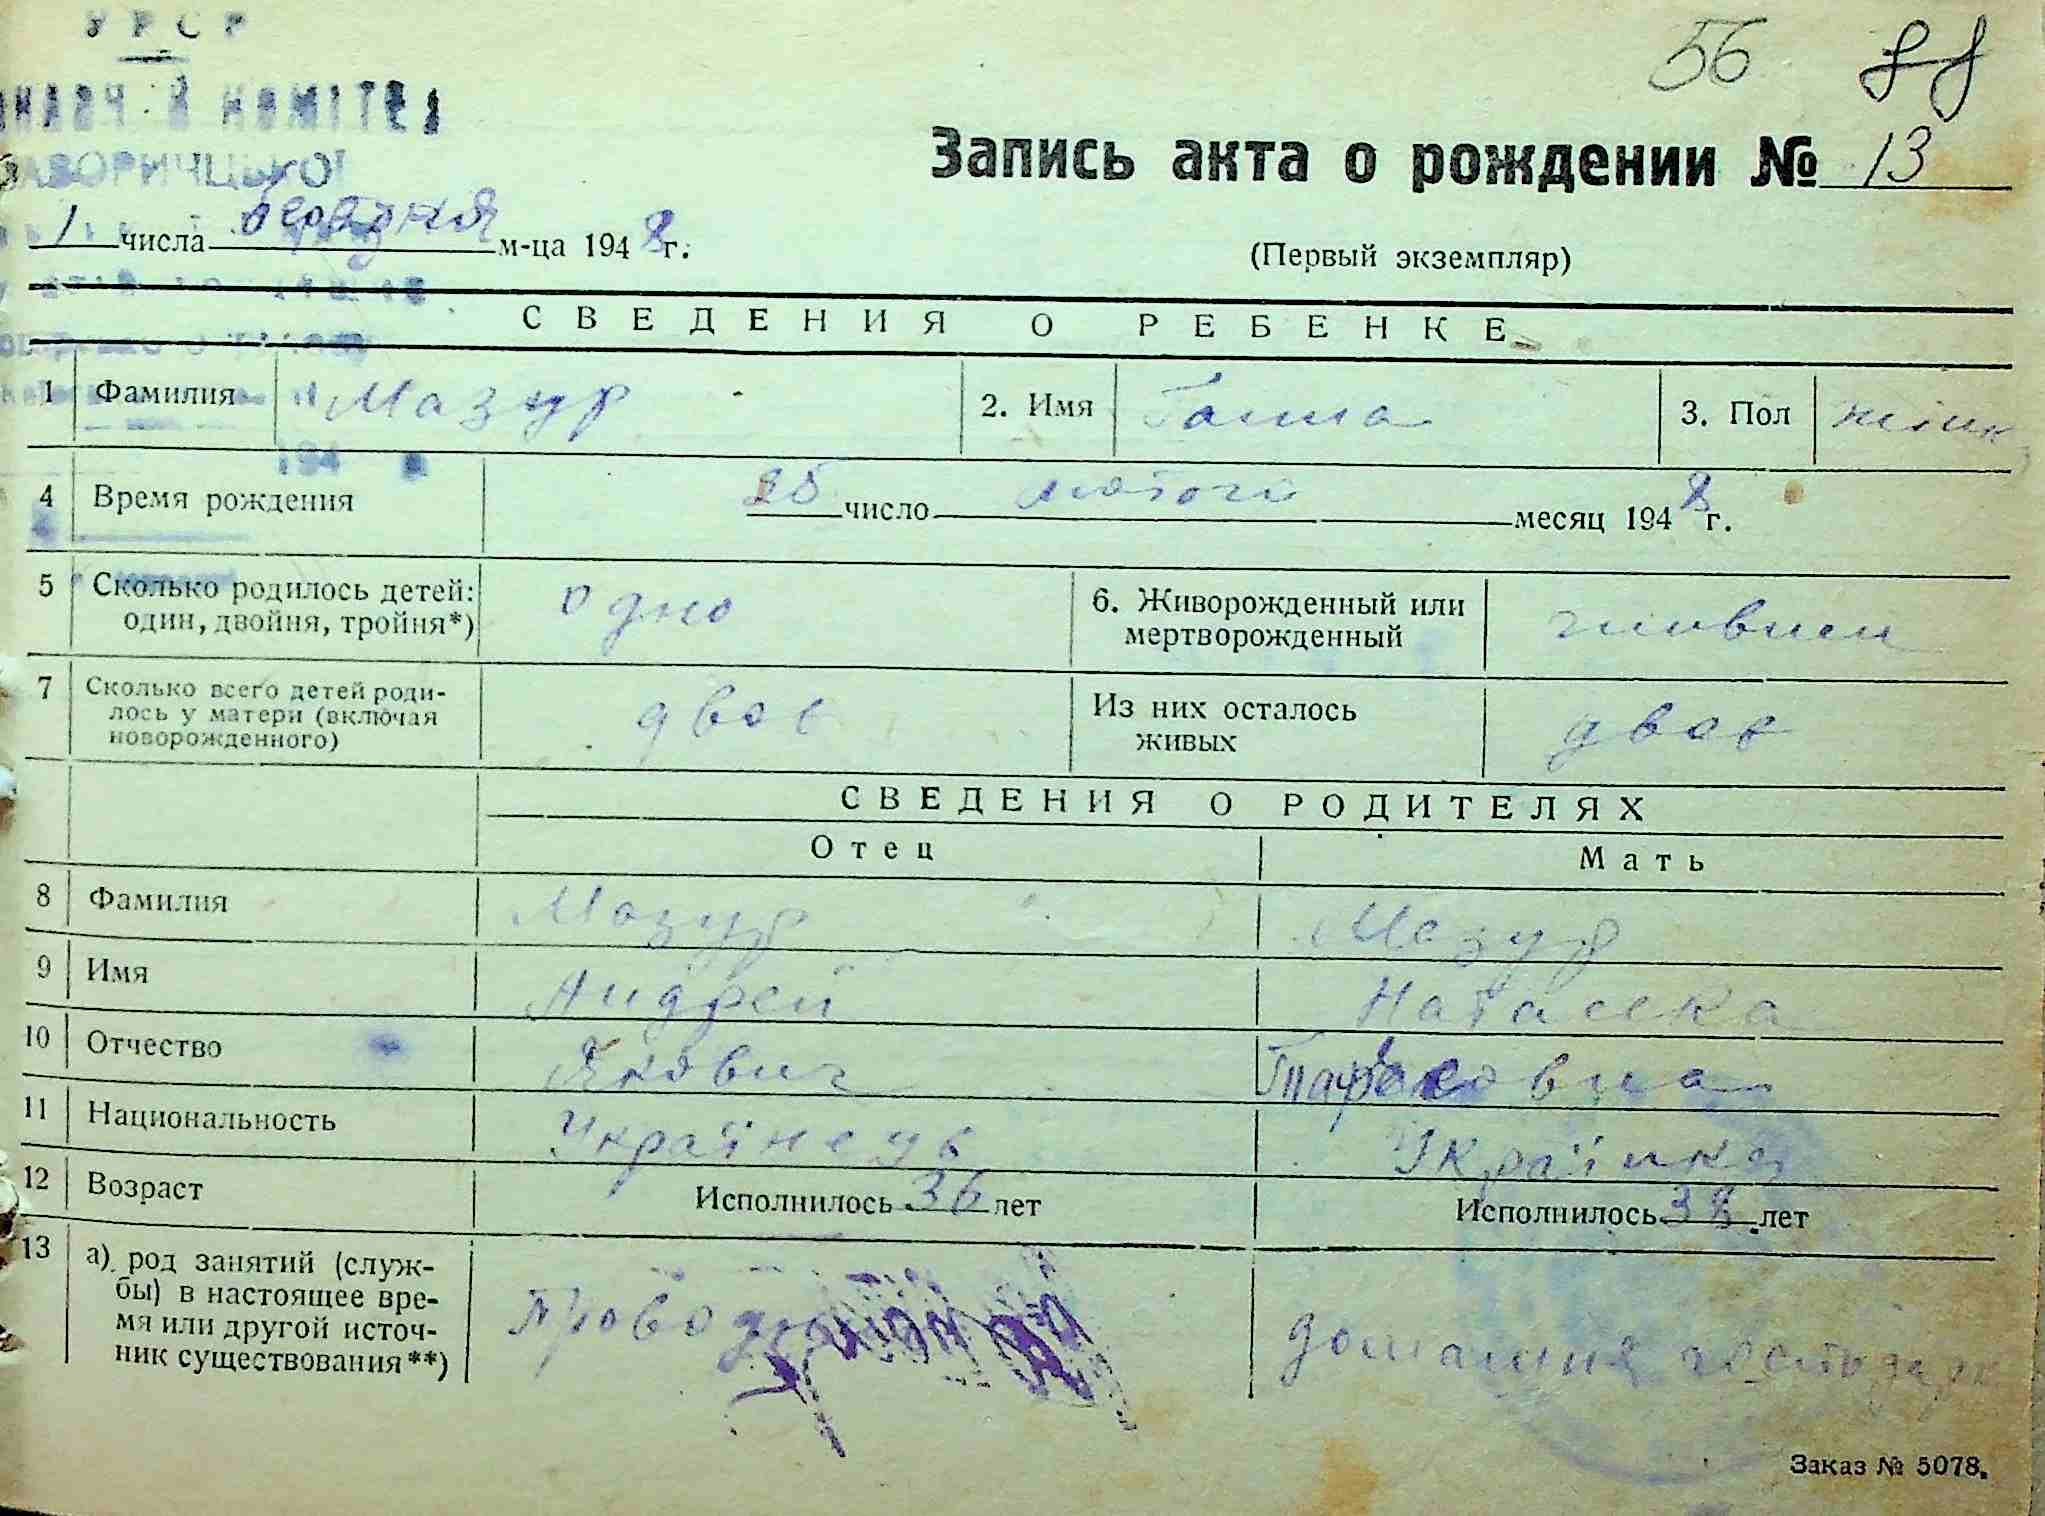 УРСР
56 88
ЗАВОРИЧЦЬКОЇ
Запись акта о рождении № 13
1 числа березня м-ца 1948 г.
(Первый экземпляр)
СВЕДЕНИЯ О РЕБЕНКЕ
1 Фамилия Мазур 2. Имя Ганна 3. Пол жіноч
194
4 Время рождения 25 число лютого месяц 1948 г.
5 Сколько родилось детей: одно 6. Живорожденный или
один, двойня, тройня*) мертворожденный
7 Сколько всего детей роди- двое Из них осталось двоє
лось у матери (включая живых
новорожденного)
СВЕДЕНИЯ О РОДИТЕЛЯХ
Отец Мать
8 Фамилия Мазур Мазур
9 Имя Андрей Наталка
10 Отчество Якович Тарасовна
11 Национальность Українець Українка
12 Возраст Исполнилось 36 лет Исполнилось 38 лет
13 а) род занятий (служ-
бы) в настоящее вре-
мя или другой источ- домашня
ник существования**)
Заказ № 5078.